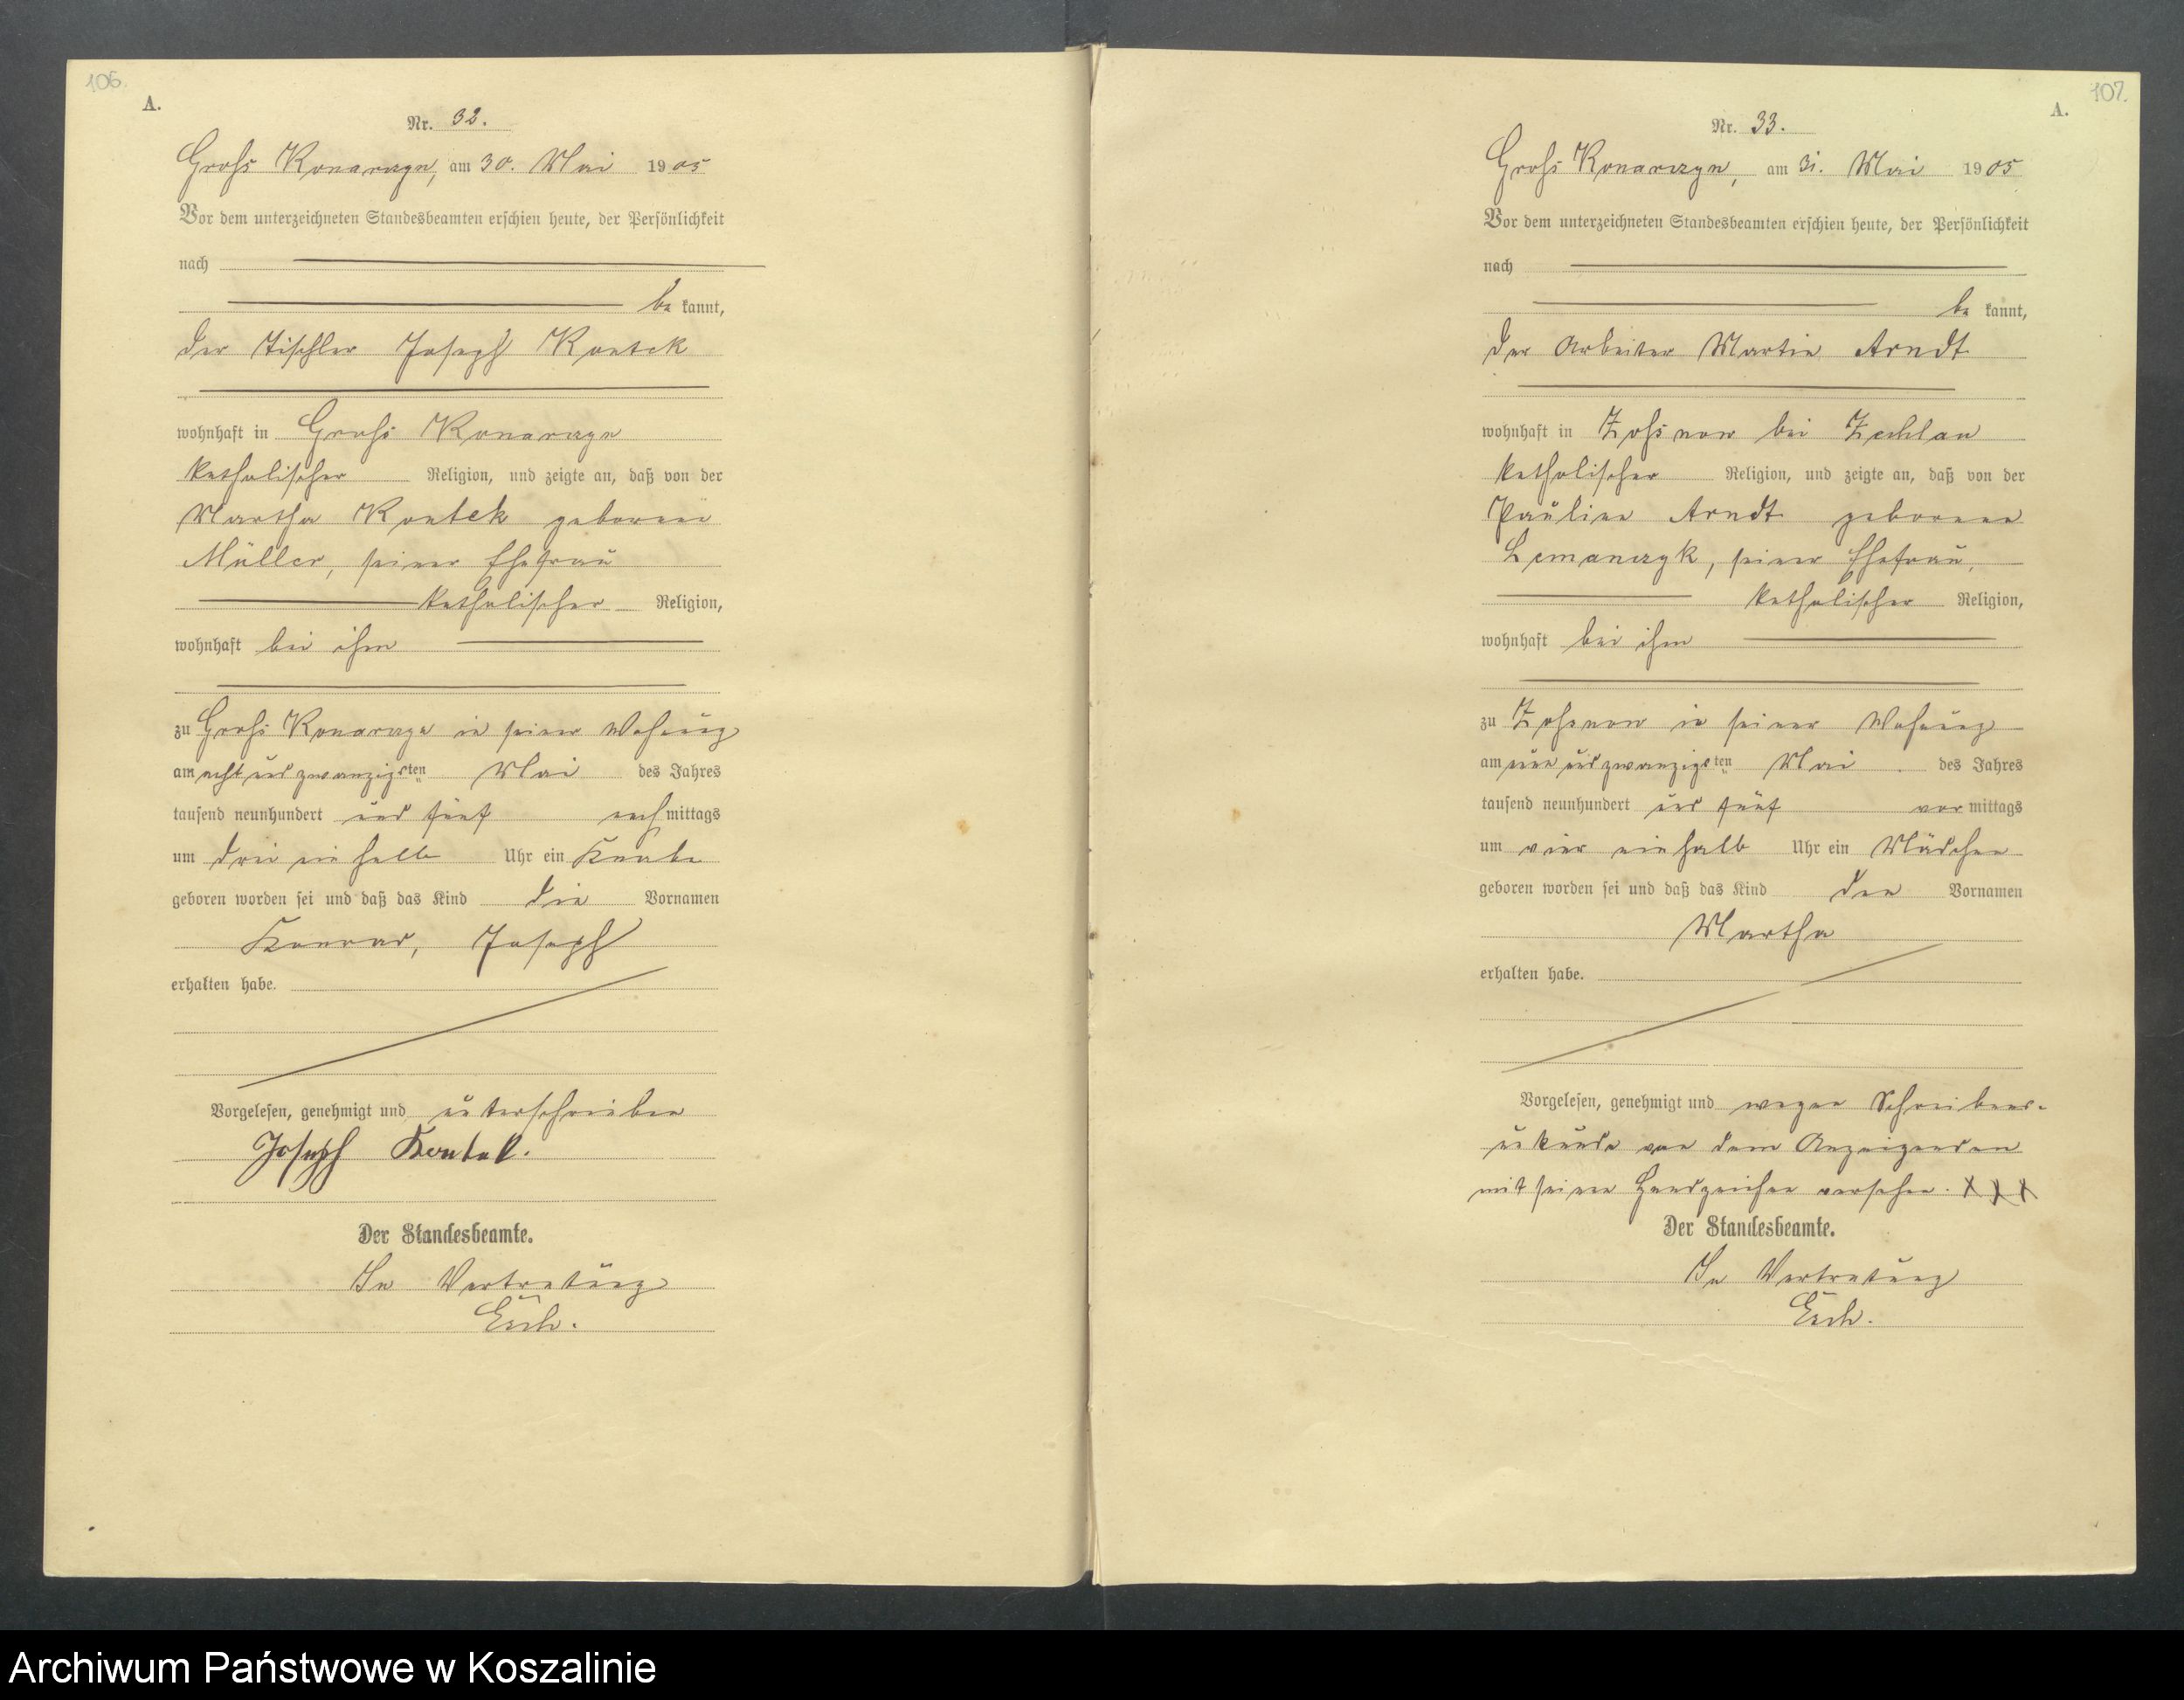 106.
A.
Nr. 32.
Groß Konarczyn, am 30. Mai 1905
Vor dem unterzeichneten Standesbeamten erschien heute, der Persönlichkeit
nach
be kannt,
der Tischler Joseph Kontek
wohnhaft in Groß Konarczyn
katholischer Religion, und zeigte an, daß von der
Martha Kontek geborene
Müller, seiner Ehefrau
katholischer Religion,
wohnhaft bei ihm
zu Groß Konarczyn in seiner Wohnung
am acht und zwanzigsten Mai des Jahres
tausend neunhundert und fünf nach mittags
um drei ein halb Uhr ein Knabe
geboren worden sei und daß das Kind die Vornamen
Konrad, Joseph
erhalten habe.
Vorgelesen, genehmigt und unterschrieben
Joseph Kontek.
Der Standesbeamte.
In Vertretung
107.
A.
Nr. 33.
Groß Konarczyn, am 31. Mai 1905
Vor dem unterzeichneten Standesbeamten erschien heute, der Persönlichkeit
nach
be kannt,
der Arbeiter Martin Arndt
wohnhaft in Zoßnow bei Zechlau
katholischer Religion, und zeigte an, daß von der
Pauline Arndt geborene
Lemanczyk, seiner Ehefrau,
katholischer Religion,
wohnhaft bei ihm
zu Zoßnow in seiner Wohnung
am neun und zwanzigsten Mai des Jahres
tausend neunhundert und fünf vor mittags
um vier ein halb Uhr ein Mädchen
geboren worden sei und daß das Kind den Vornamen
Martha
erhalten habe.
Vorgelesen, genehmigt und wegen Schreibens-
unkunde von dem Anzeigenden
mit seinen Handzeichen versehen. X X X
Der Standesbeamte.
In Vertretung
Archiwum Państwowe w Koszalinie